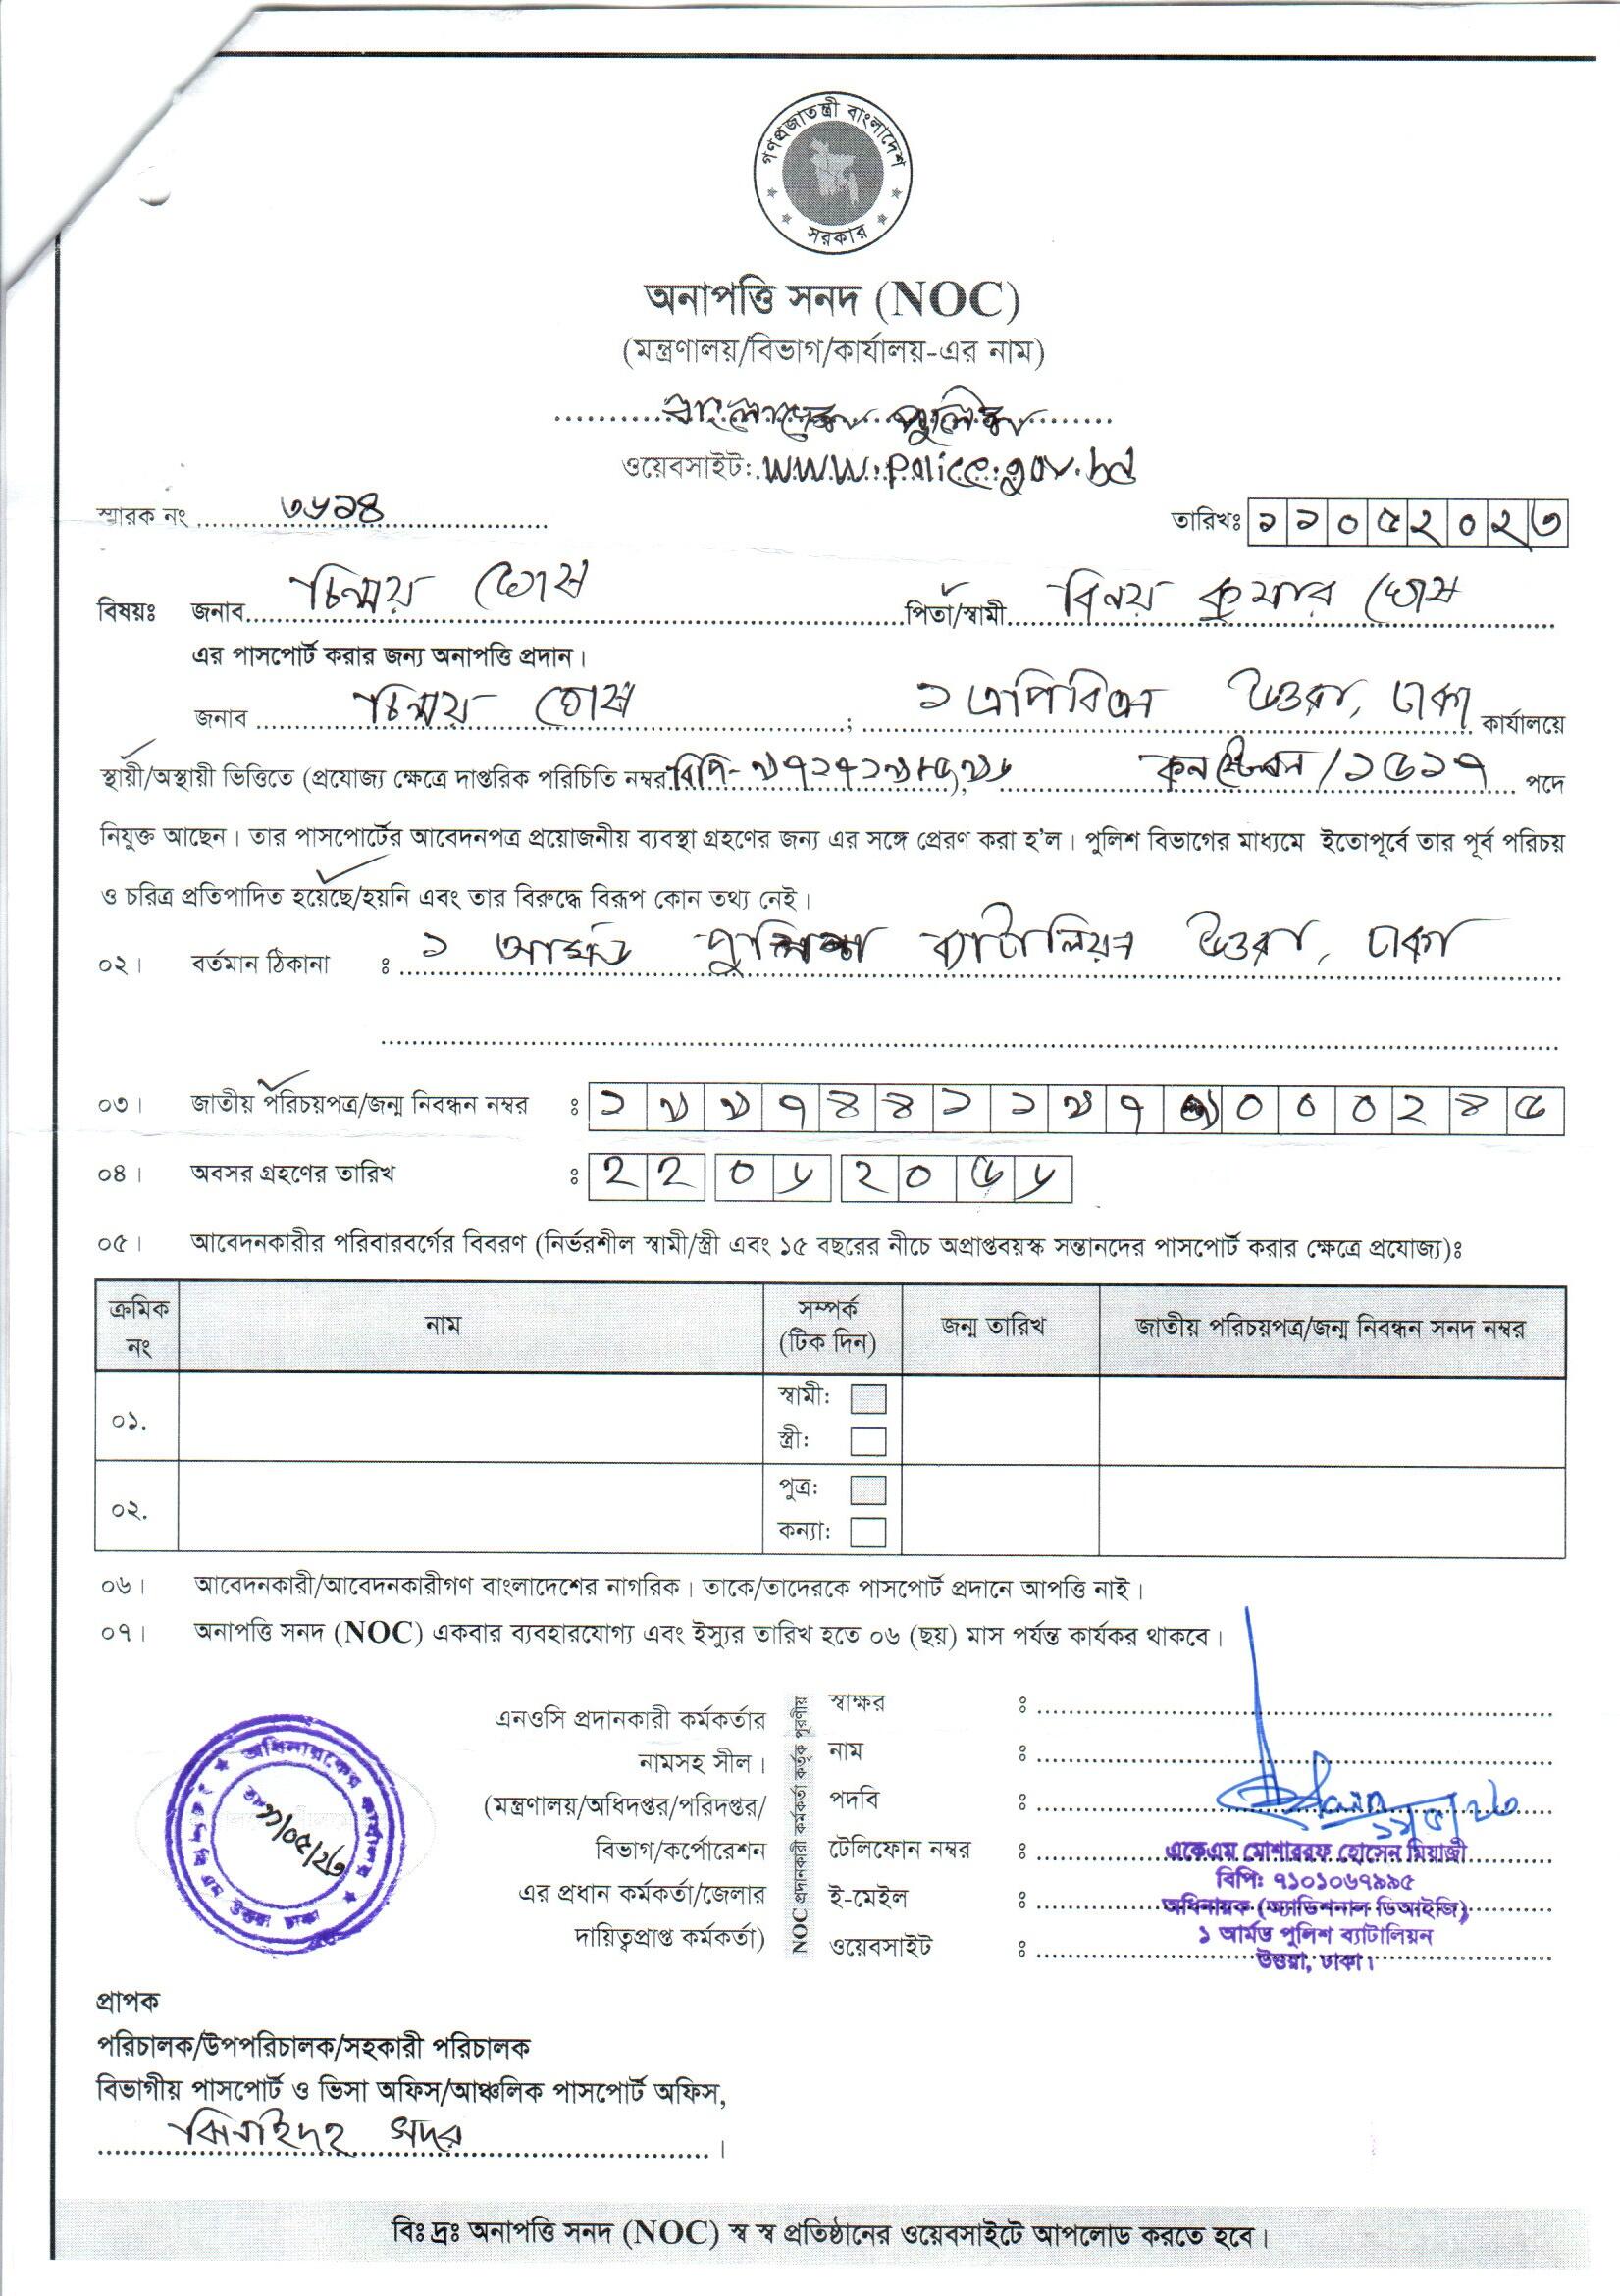 গণপ্রজাতন্ত্রী বাংলাদেশ
সরকার
অনাপত্তি সনদ (NOC)
(মন্ত্রণালয়/বিভাগ/কার্যালয়-এর নাম)
বাংলাদেশ পুলিশ
ওয়েবসাইট: www.police.gov.bd
স্মারক নং ৩৬১৪ তারিখঃ ১১০৫২০২৩
বিষয়ঃ জনাব চিন্ময় ঘোষ পিতা/স্বামী বিনয় কুমার ঘোষ
এর পাসপোর্ট করার জন্য অনাপত্তি প্রদান।
জনাব চিন্ময় ঘোষ ; ১ এপিবিএন উত্তরা, ঢাকা কার্যালয়ে
স্থায়ী/অস্থায়ী ভিত্তিতে (প্রযোজ্য ক্ষেত্রে দাপ্তরিক পরিচিতি নম্বর বিপি- ), কনস্টেবল/১৫১৭ পদে
নিযুক্ত আছেন। তার পাসপোর্টের আবেদনপত্র প্রয়োজনীয় ব্যবস্থা গ্রহণের জন্য এর সঙ্গে প্রেরণ করা হ'ল। পুলিশ বিভাগের মাধ্যমে ইতোপূর্বে তার পূর্ব পরিচয়
ও চরিত্র প্রতিপাদিত হয়েছে/হয়নি এবং তার বিরুদ্ধে বিরূপ কোন তথ্য নেই।
০২। বর্তমান ঠিকানা ঃ ১ আর্মড পুলিশ ব্যাটালিয়ন উত্তরা, ঢাকা
০৩। জাতীয় পরিচয়পত্র/জন্ম নিবন্ধন নম্বর ঃ ১৯৯৭৪৪১১৯৭৯০০০২৪৫
০৪। অবসর গ্রহণের তারিখ ঃ ২২০৬২০৫৬
০৫। আবেদনকারীর পরিবারবর্গের বিবরণ (নির্ভরশীল স্বামী/স্ত্রী এবং ১৫ বছরের নীচে অপ্রাপ্তবয়স্ক সন্তানদের পাসপোর্ট করার ক্ষেত্রে প্রযোজ্য)ঃ
ক্রমিক নং নাম সম্পর্ক (টিক দিন) জন্ম তারিখ জাতীয় পরিচয়পত্র/জন্ম নিবন্ধন সনদ নম্বর
০১. স্বামী:
স্ত্রী:
০২. পুত্র:
কন্যা:
০৬। আবেদনকারী/আবেদনকারীগণ বাংলাদেশের নাগরিক। তাকে/তাদেরকে পাসপোর্ট প্রদানে আপত্তি নাই।
০৭। অনাপত্তি সনদ (NOC) একবার ব্যবহারযোগ্য এবং ইস্যুর তারিখ হতে ০৬ (ছয়) মাস পর্যন্ত কার্যকর থাকবে।
অধিনায়কের কার্যালয়
উত্তরা ঢাকা
এনওসি প্রদানকারী কর্মকর্তার
নামসহ সীল।
(মন্ত্রণালয়/অধিদপ্তর/পরিদপ্তর/
বিভাগ/কর্পোরেশন
এর প্রধান কর্মকর্তা/জেলার
দায়িত্বপ্রাপ্ত কর্মকর্তা)
NOC প্রদানকারী কর্মকর্তা কর্তৃক পূরণীয়
স্বাক্ষর ঃ
নাম ঃ
পদবি ঃ
টেলিফোন নম্বর ঃ
ই-মেইল ঃ
ওয়েবসাইট ঃ
১১/৫/২৩
একেএম মোশাররফ হোসেন মিয়াজী
বিপি: ৭১০১০৬৭৯৯৫
অধিনায়ক (অ্যাডিশনাল ডিআইজি)
১ আর্মড পুলিশ ব্যাটালিয়ন
উত্তরা, ঢাকা।
প্রাপক
পরিচালক/উপপরিচালক/সহকারী পরিচালক
বিভাগীয় পাসপোর্ট ও ভিসা অফিস/আঞ্চলিক পাসপোর্ট অফিস,
ঝিনাইদহ সদর।
বিঃ দ্রঃ অনাপত্তি সনদ (NOC) স্ব স্ব প্রতিষ্ঠানের ওয়েবসাইটে আপলোড করতে হবে।